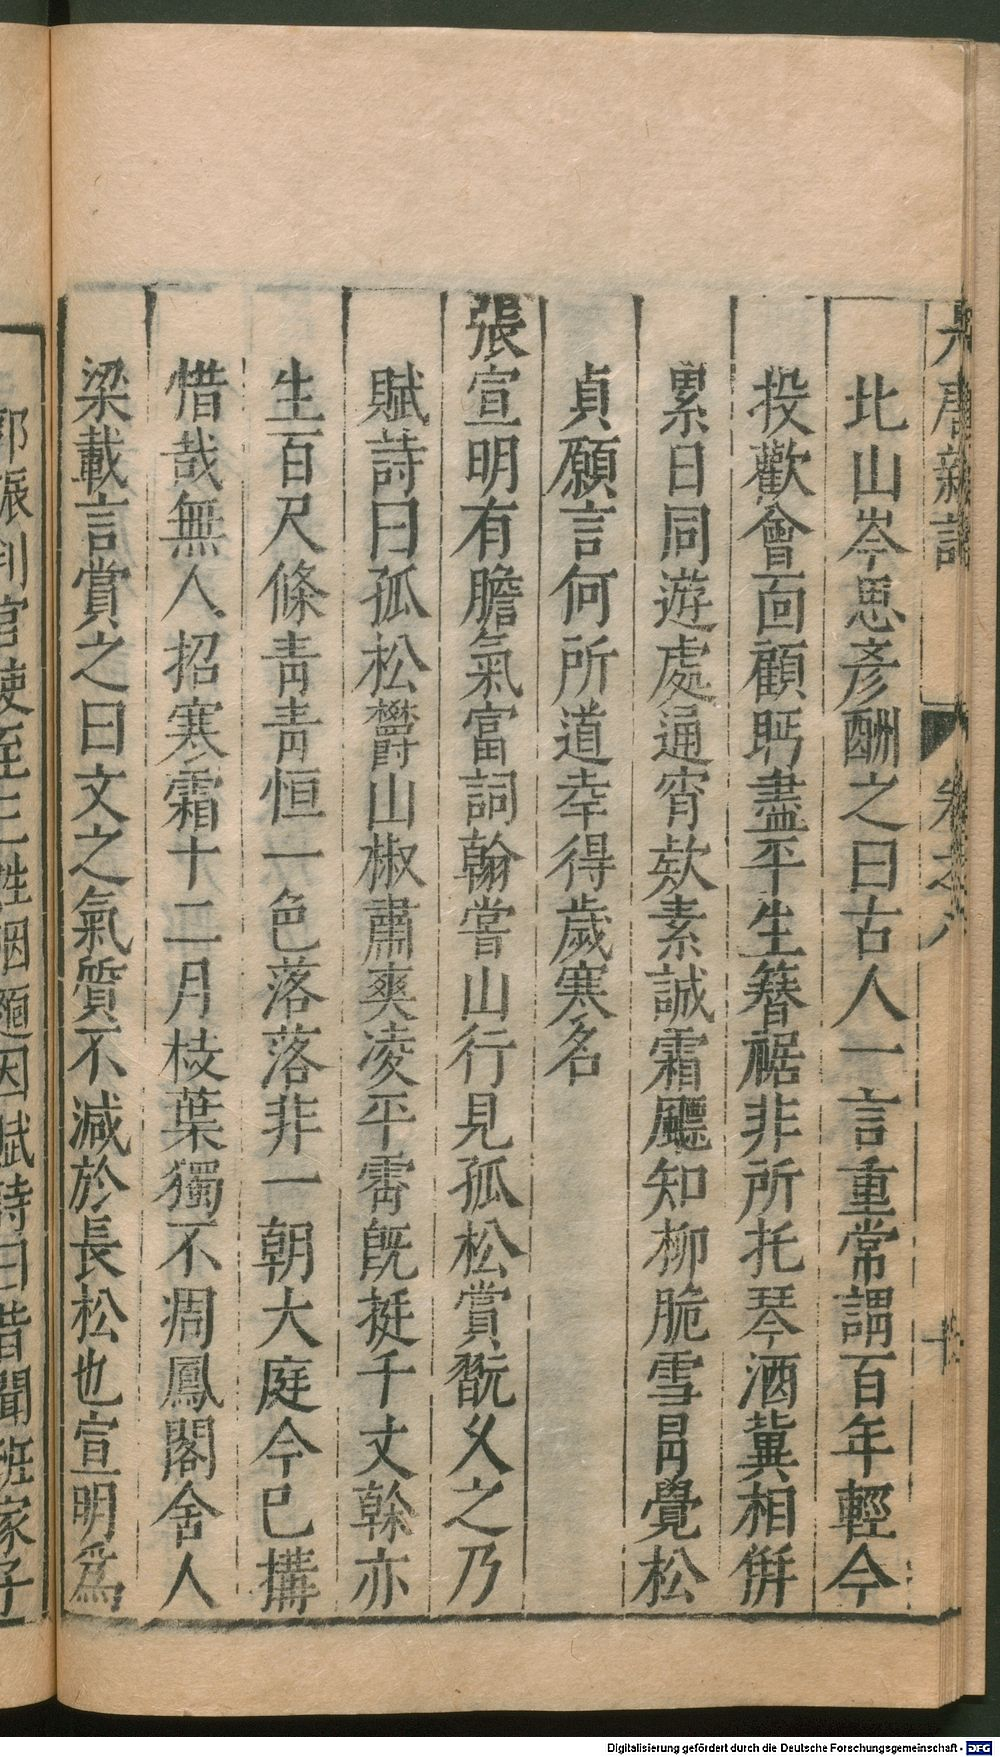 大唐新語　卷之八
北山岑思彥酬之曰古人一言重常謂百年輕今
投歡會面顧眄盡平生簪裾非所托琴酒冀相併
累日同遊處通宵欵素誠霜飈知柳脆雪冐覺松
貞願言何所道幸得歲寒名
張宣明有膽氣富詞翰嘗山行見孤松賞翫乆之乃
賦詩曰孤松欝山椒肅爽凌平霄旣挺千丈榦亦
生百尺條青青恒一色落落非一朝大庭今已構
惜哉無人招寒霜十二月枝葉獨不凋鳳閣舍人
梁載言賞之曰文之氣質不減於長松也宣明爲
郭振判官使至三姓咽麫因賦詩曰昔聞班家子
Digitalisierung gefördert durch die Deutsche Forschungsgemeinschaft - DFG